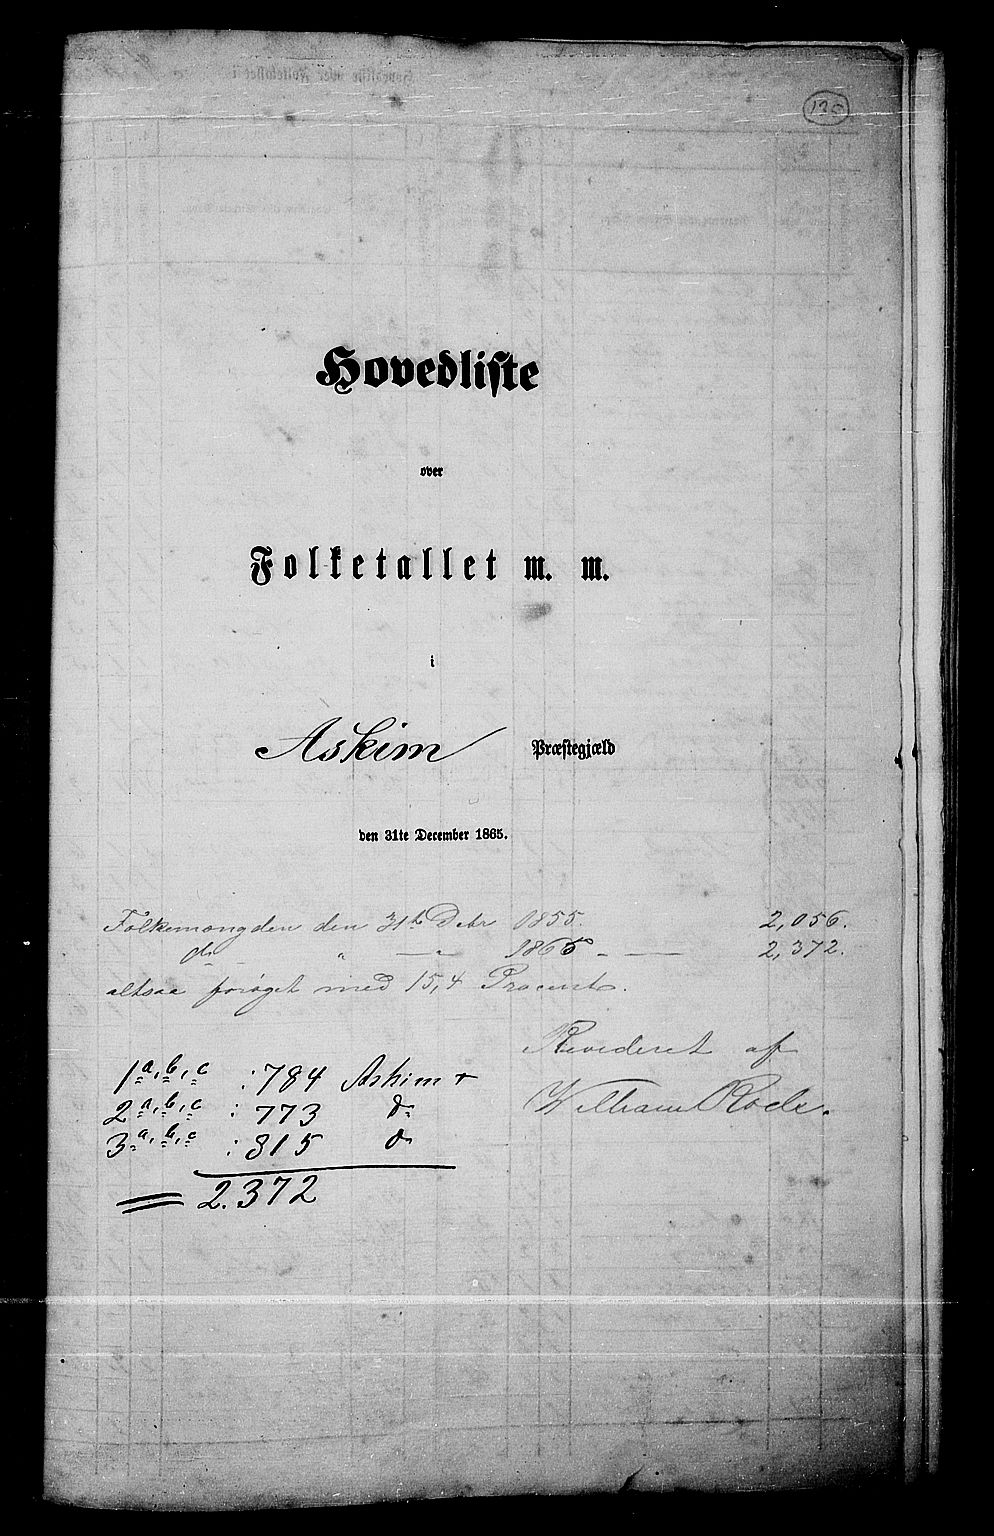 120
Hovedliste
over
Folketallet m. m.
i
Askim Præstegjæld
den 31te December 1865.
Folkemængden den 31te Debr 1855. 2,056.
do " — " — 1865 - — 2,372.
altsaa forøget med 15,4 Procent.
Revideret af
William Rode.
1a, b, c : 784 Askim +
2a, b, c : 773 do
3a, b, c : 815 do
2.372